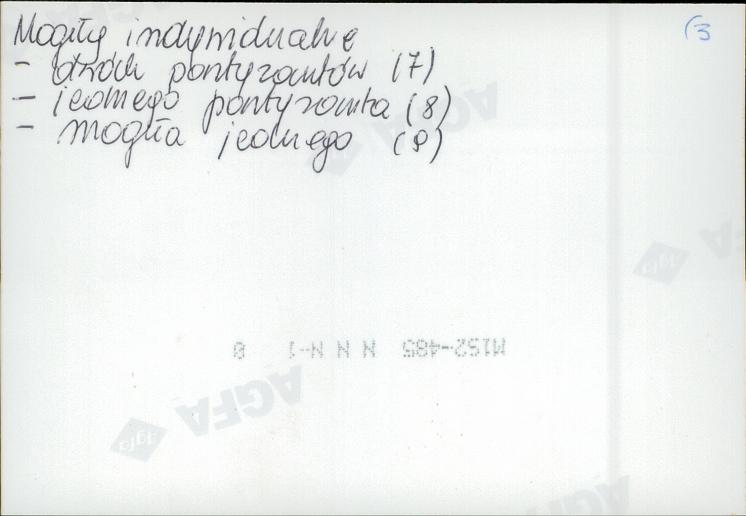 Mogiły indywidualne
(3
- dwóch partyzantów (7)
- jednego partyzanta (8)
- mogiła jednego (9)
M1S2-485 N N N-1 0
AGFA
AGFA
Agfa
AGFA
Agfa
AGFA
AGFA